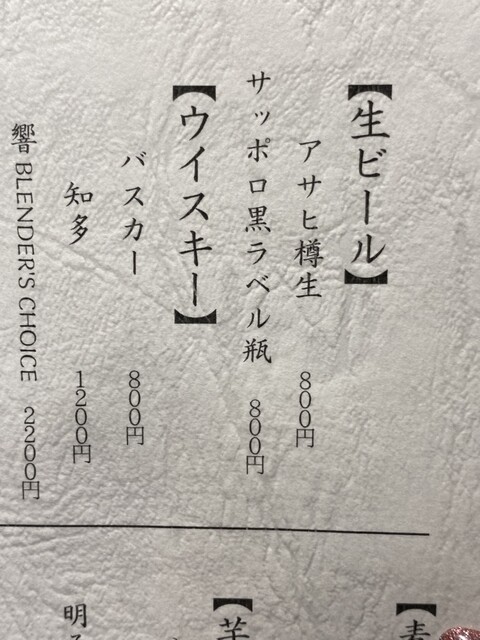 【生ビール】
アサヒ樽生 800円
サッポロ黒ラベル瓶 800円
【ウイスキー】
バスカー 800円
知多 1200円
響 BLENDER'S CHOICE 2200円
【麦
【芋
明